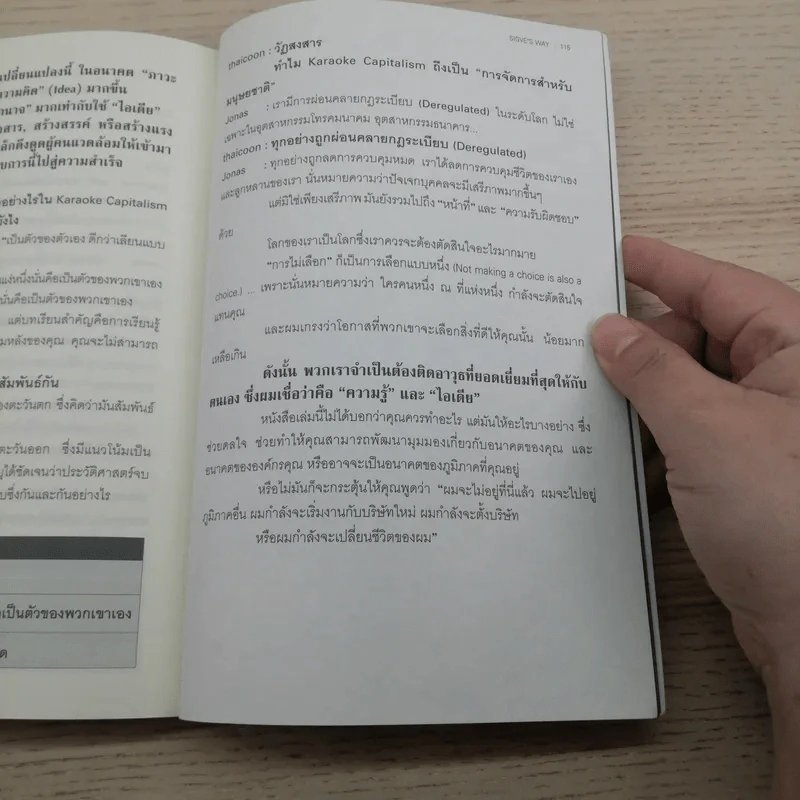 เปลี่ยนแปลงนี้ ในอนาคต "ภาวะ
ความคิด" (Idea) มากขึ้น
มากเท่ากับใช้ "ไอเดีย"
สร้างสรรค์ หรือสร้างแรง
ดึงดูดผู้คนแวดล้อมให้เข้ามา
การนี้ไปสู่ความสำเร็จ
อย่างไรใน Karaoke Capitalism
"เป็นตัวของตัวเอง ดีกว่าเลียนแบบ
แห่งหนึ่งนั่นคือเป็นตัวของพวกเขาเอง
นั่นคือเป็นตัวของพวกเขาเอง
แต่บทเรียนสำคัญคือการเรียนรู้
หลังของคุณ คุณจะไม่สามารถ
สัมพันธ์กัน
ตะวันตก ซึ่งคิดว่ามันสัมพันธ์
ตะวันออก ซึ่งมีแนวโน้มเป็น
ได้ชัดเจนว่าประวัติศาสตร์จบ
ซึ่งกันและกันอย่างไร
เป็นตัวของพวกเขาเอง
SIGVE'S WAY 115
thaicoon : วัฏสงสาร
ทำไม Karaoke Capitalism ถึงเป็น "การจัดการสำหรับ
มนุษยชาติ"
Jonas : เรามีการผ่อนคลายกฎระเบียบ (Deregulated) ในระดับโลก ไม่ใช่
เฉพาะในอุตสาหกรรมโทรคมนาคม อุตสาหกรรมธนาคาร...
thaicoon : ทุกอย่างถูกผ่อนคลายกฎระเบียบ (Deregulated)
Jonas : ทุกอย่างถูกลดการควบคุมหมด เราได้ลดการควบคุมชีวิตของเราเอง
และลูกหลานของเรา นั่นหมายความว่าปัจเจกบุคคลจะมีเสรีภาพมากขึ้นๆ
แต่มิใช่เพียงเสรีภาพ มันยังรวมไปถึง "หน้าที่" และ "ความรับผิดชอบ"
ด้วย
โลกของเราเป็นโลกซึ่งเราควรจะต้องตัดสินใจอะไรมากมาย
"การไม่เลือก" ก็เป็นการเลือกแบบหนึ่ง (Not making a choice is also a
choice.) ... เพราะนั่นหมายความว่า ใครคนหนึ่ง ณ ที่แห่งหนึ่ง กำลังจะตัดสินใจ
แทนคุณ
และผมเกรงว่าโอกาสที่พวกเขาจะเลือกสิ่งที่ดีให้คุณนั้น น้อยมาก
เหลือเกิน
ดังนั้น พวกเราจำเป็นต้องติดอาวุธที่ยอดเยี่ยมที่สุดให้กับ
ตนเอง ซึ่งผมเชื่อว่าคือ "ความรู้" และ "ไอเดีย"
หนังสือเล่มนี้ไม่ได้บอกว่าคุณควรทำอะไร แต่มันให้อะไรบางอย่าง ซึ่ง
ช่วยดลใจ ช่วยทำให้คุณสามารถพัฒนามุมมองเกี่ยวกับอนาคตของคุณ และ
อนาคตขององค์กรคุณ หรืออาจจะเป็นอนาคตของภูมิภาคที่คุณอยู่
หรือไม่มันก็จะกระตุ้นให้คุณพูดว่า "ผมจะไม่อยู่ที่นี่แล้ว ผมจะไปอยู่
ภูมิภาคอื่น ผมกำลังจะเริ่มงานกับบริษัทใหม่ ผมกำลังจะตั้งบริษัท
หรือผมกำลังจะเปลี่ยนชีวิตของผม"